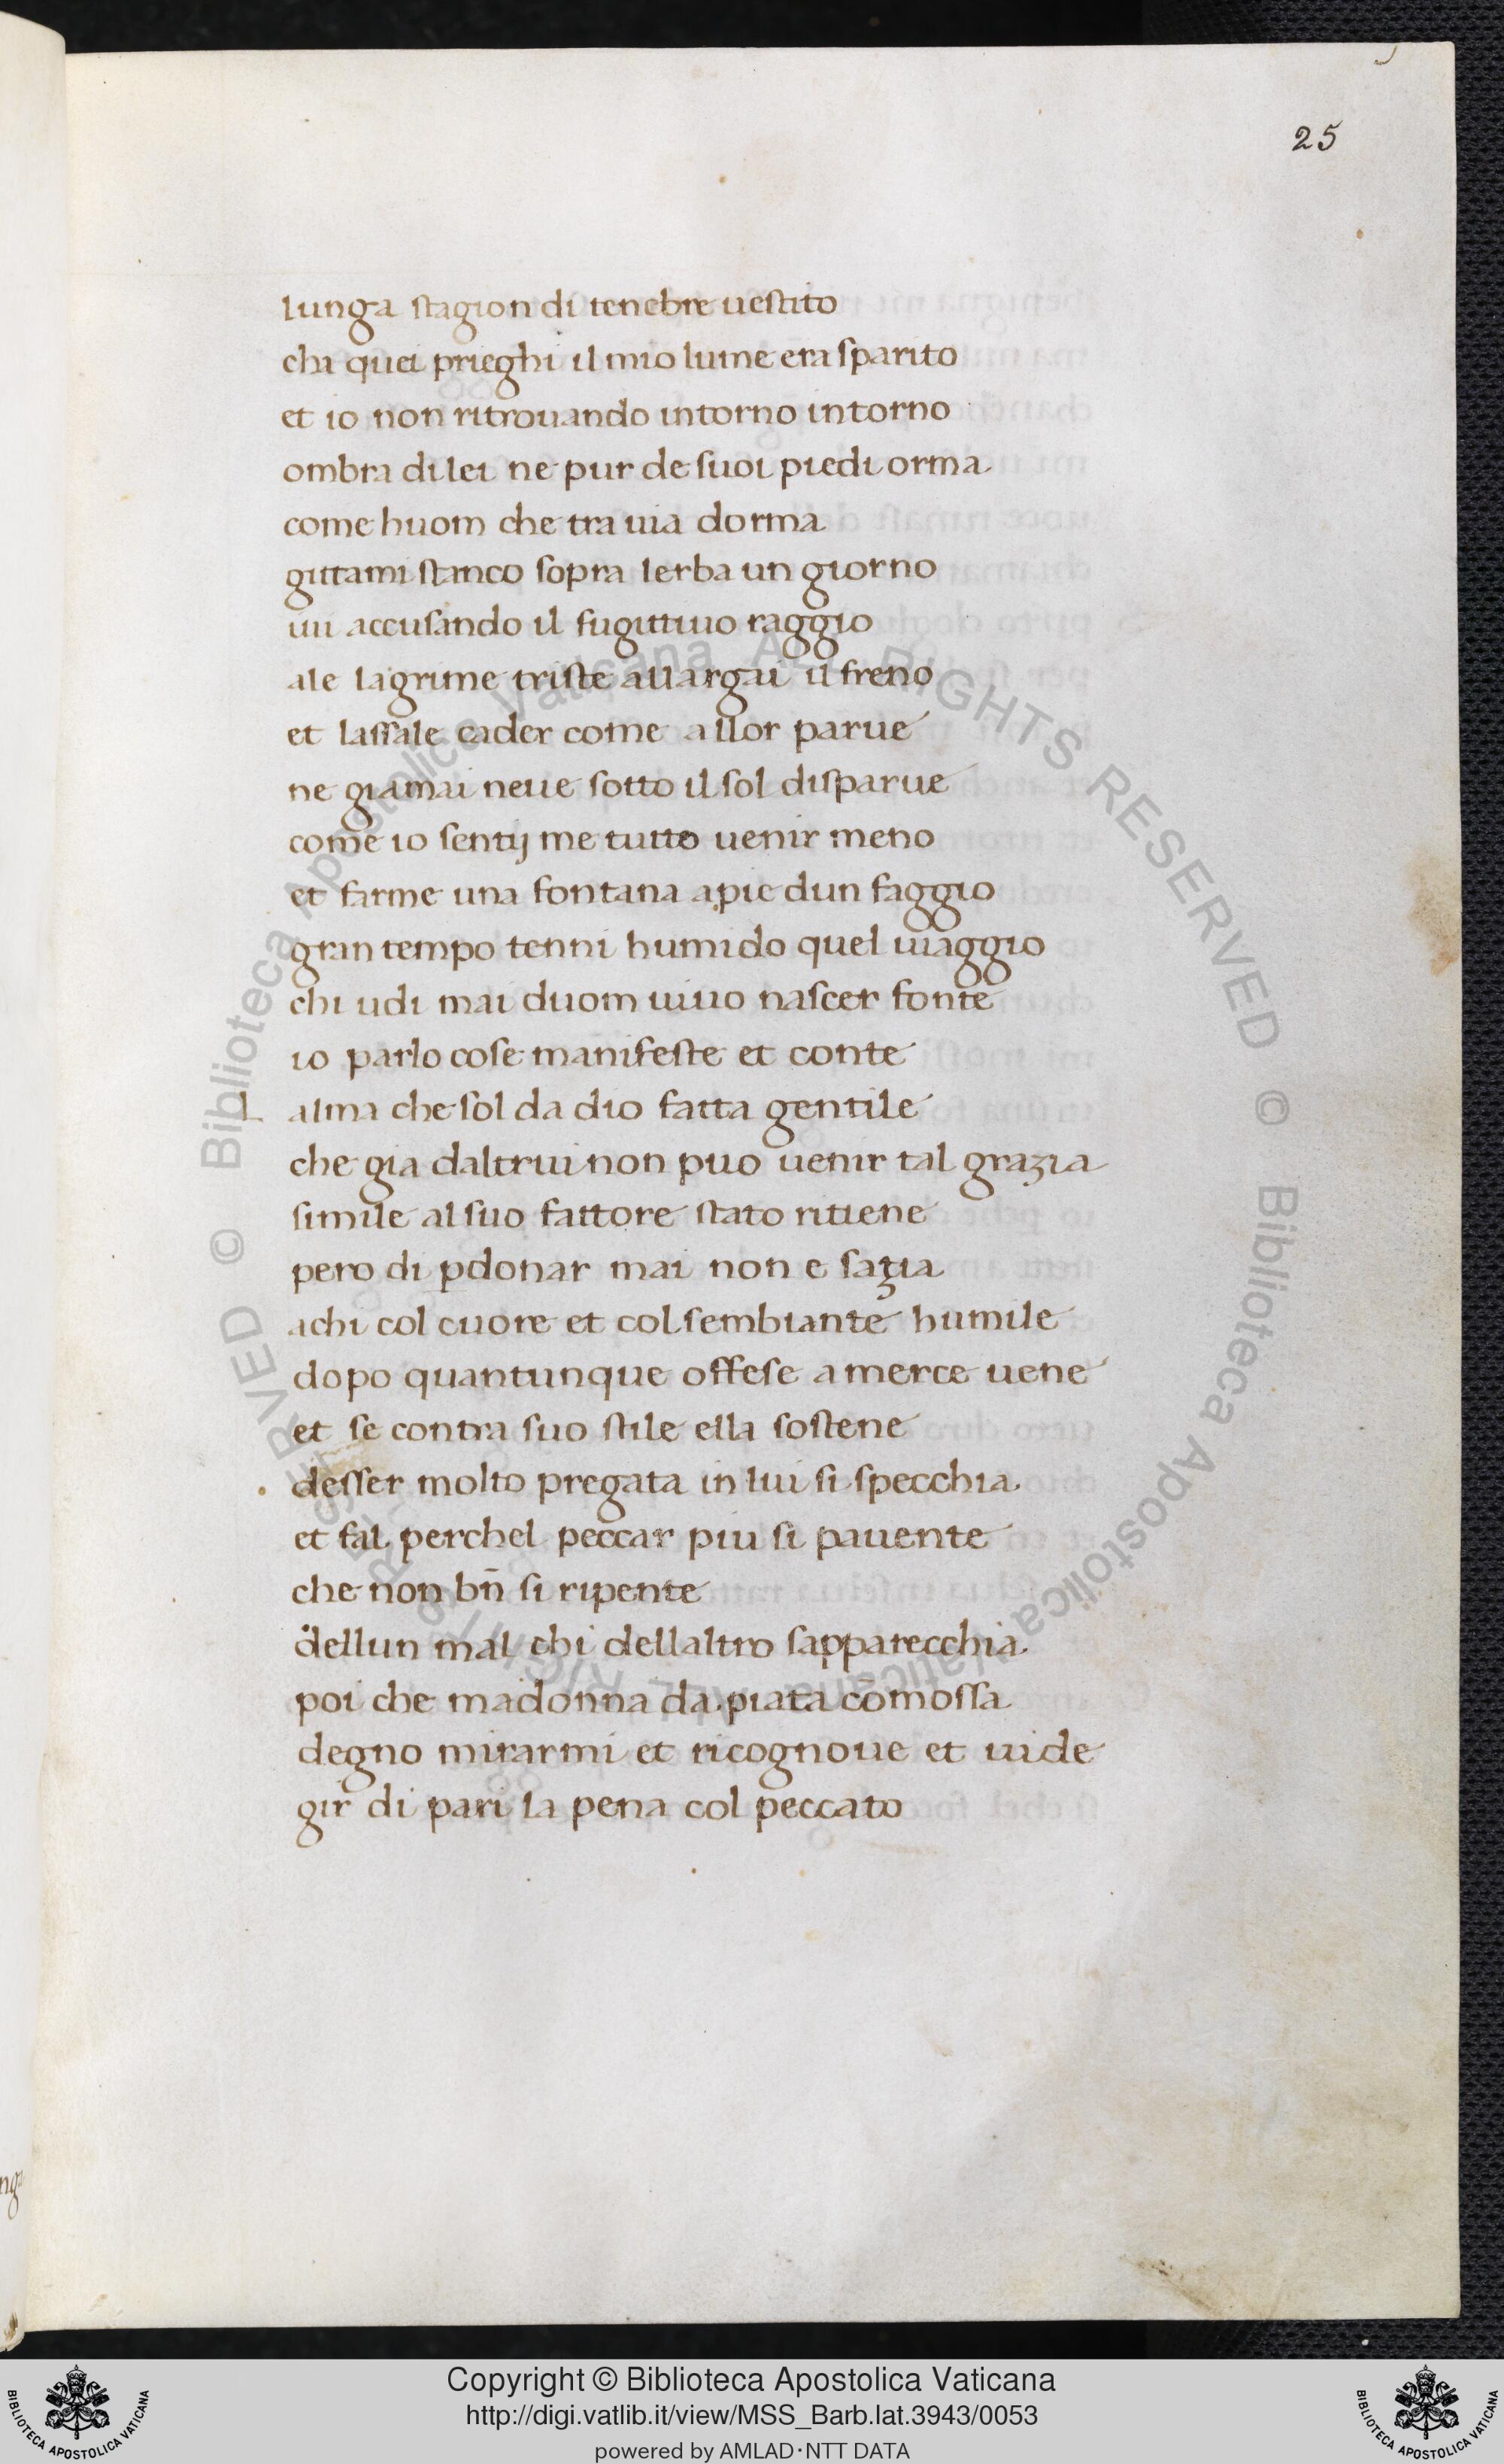 25
lunga stagion di tenebre uestito
chi quei prieghi il mio lume era sparito
et io non ritrouando intorno intorno
ombra di lei ne pur de suoi piedi orma
come huom che tra uia dorma
gittami stanco sopra lerba un giorno
iui accusando il fugittiuo raggio
ale lagrime triste allargai il freno
et lassale cader come allor parue
ne giamai neue sotto il sol disparue
come io sentij me tutto uenir meno
et farme una fontana apie dun faggio
gran tempo tenni humido quel uiaggio
chi udi mai duom uiuo nascer fonte
io parlo cose manifeste et conte
L alma che sol da dio fatta gentile
che gia daltrui non puo uenir tal grazia
simile al suo fattore stato ritiene
pero di ꝑdonar mai non e sazia
achi col cuore et col sembiante humile
dopo quantunque offese a merce uene
et se contra suo stile ella sostene
desser molto pregata in lui si specchia
et fal perchel peccar piu si pauente
che non bn̄ si ripente
dellun mal chi dellaltro sapparecchia
poi che madonna da piata cōmossa
degno mirarmi et ricognoue et uide
gir di pari la pena col peccato
Copyright © Biblioteca Apostolica Vaticana
http://digi.vatlib.it/view/MSS_Barb.lat.3943/0053
powered by AMLAD·NTT DATA